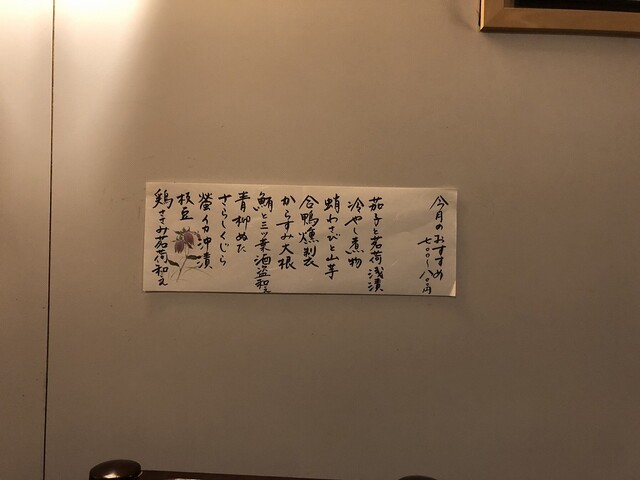 今月のおすすめ
七〇〇〜八〇〇円
茄子と茗荷浅漬
冷やし煮物
蛸わさびと山芋
合鴨燻製
からすみ大根
鮪と三ツ葉酒盗和え
青柳ぬた
さらしくじら
螢イカ沖漬
枝豆
鶏ささみ茗荷和え